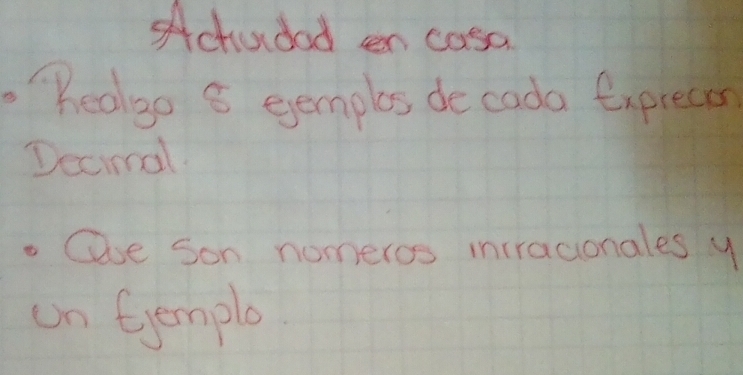 Actividad en casa
• Realgo 8 ejemplos de cada Exprecion
Decimal.
• Que son nomeros inrracionales y
un Ejemplo.